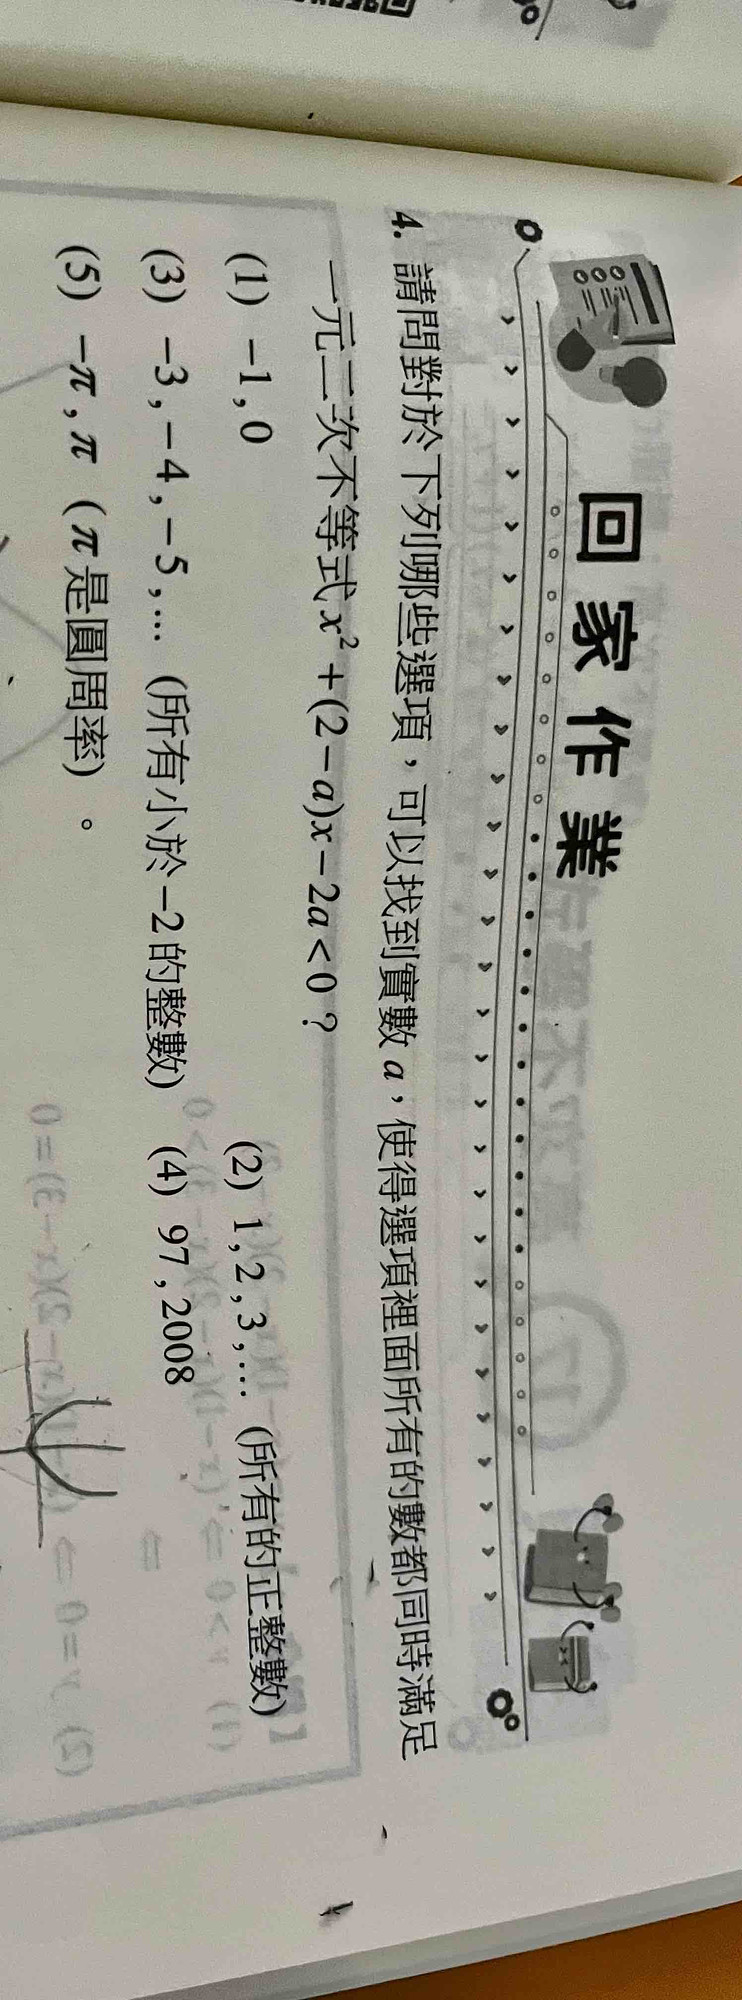 回家作業
4. 請問對於下列哪些選項，可以找到實數 a，使得選項裡面所有的數都同時滿足
一元二次不等式 x²+(2−a)x−2a<0？
(1) −1 , 0 (2) 1 , 2 , 3 , … (所有的正整數)
(3) −3 , −4 , −5 , … (所有小於−2的整數) (4) 97 , 2008
(5) −π , π (π是圓周率)。